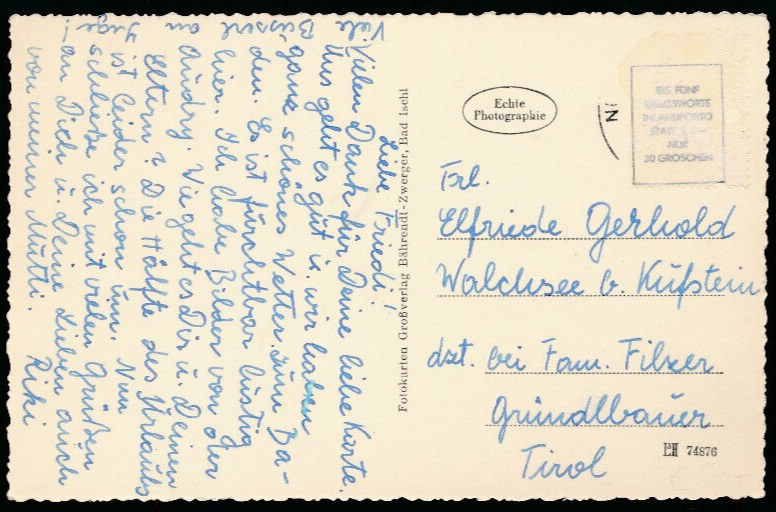 Liebe Friedi!
Vielen Dank für Deine liebe Karte.
Uns geht es gut u. wir haben
ganz schönes Wetter zum Ba-
den. Es ist furchtbar lustig
hier. Ich habe Bilder von der
Audry. Wie geht es Dir u. Deinen
Eltern? Die Hälfte des Urlaubs
ist leider schon um. Nun
schließe ich mit vielen Grüßen
an Dich u. Deine Lieben auch
von meiner Mutti. Riki
Viele
Busserl
an
Inge!
Fotokarten Großverlag Bährendt-Zwerger, Bad Ischl
Echte
Photographie
N
BIS FÜNF
GRUSSWORTE
INLANDPORTO
STATT S 1.—
NUR
30 GROSCHEN
Frl.
Elfriede Gerhold
Walchsee b. Kufstein
dzt. bei Fam. Filzer
Gründlbauer
Tirol
74876